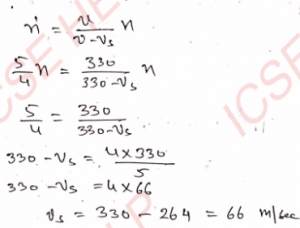 n' = v/(v-vs) n
5/4 n = 330/(330-vs) n
5/4 = 330/(330-vs)
330 - vs = 4x330/5
330 - vs = 4x66
vs = 330 - 264 = 66 m/sec
ICSE HE
ICSE
LP